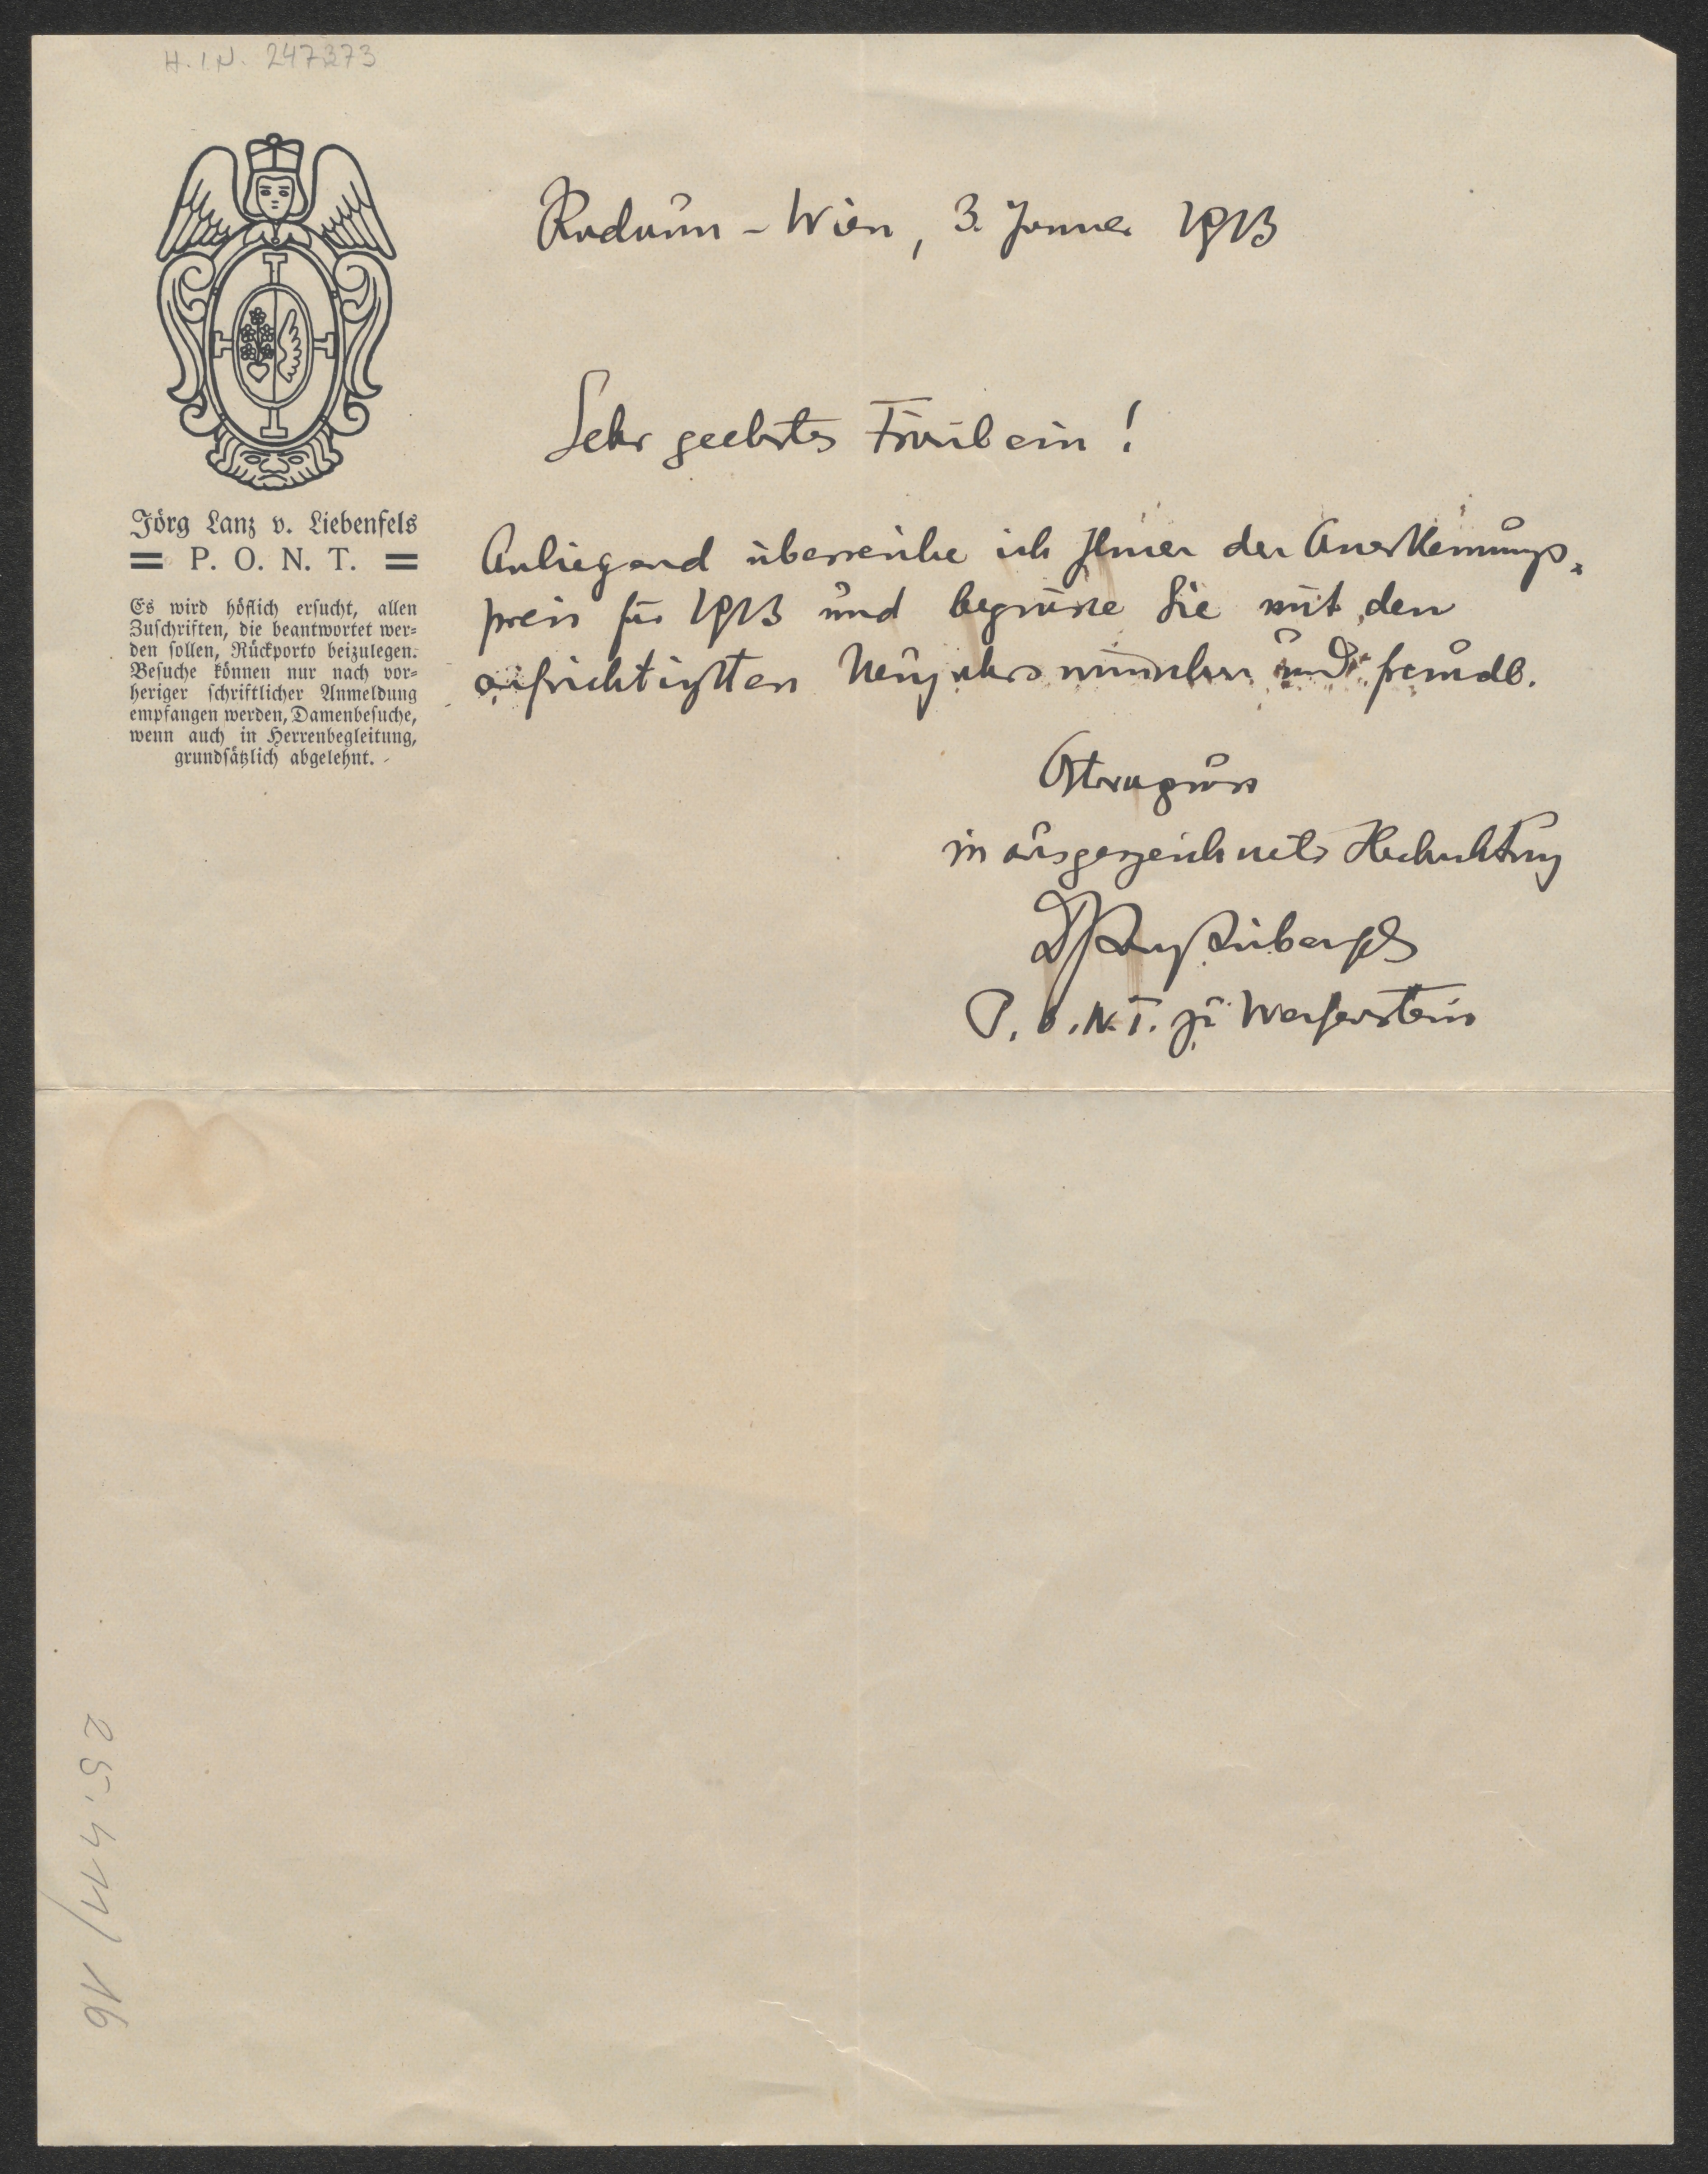 H.I.N. 247373
Jörg Lanz v. Liebenfels
= P. O. N. T. =
Es wird höflich ersucht, allen
Zuschriften, die beantwortet wer-
den sollen, Rückporto beizulegen.
Besuche können nur nach vor-
heriger schriftlicher Anmeldung
empfangen werden, Damenbesuche,
wenn auch in Herrenbegleitung,
grundsätzlich abgelehnt.
Rodaun - Wien, 3. Jänner 1913
Sehr geehrtes Fräulein!
Anliegend überreiche ich Ihnen den Anerkennungs-
preis für 1913 und begrüsse Sie mit den
aufrichtigsten Neujahrswünschen und freundl.
Ostaragruss
in ausgezeichneter Hochachtung
P. O. N. T. zu Werfenstein
25.411/16